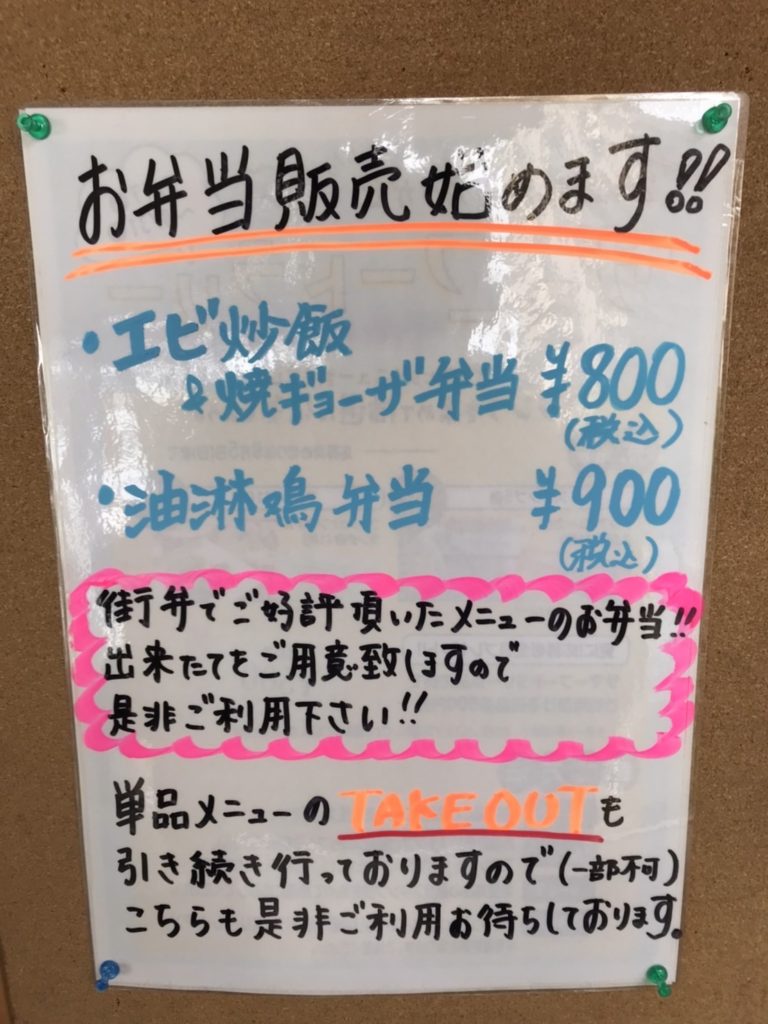 お弁当販売始めます!!
・エビ炒飯
&焼ギョーザ弁当 ¥800
(税込)
・油淋鶏弁当 ¥900
(税込)
街弁でご好評頂いたメニューのお弁当!!
出来たてをご用意致しますので
是非ご利用下さい!!
単品メニューのTAKE OUTも
引き続き行っておりますので(一部不可)
こちらも是非ご利用お待ちしております。